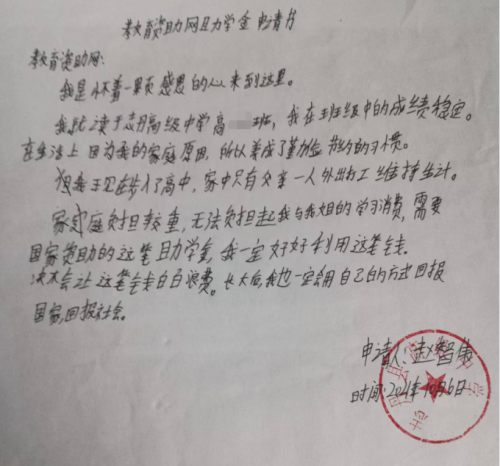 教育资助网且力学金申请书
教育资助网:
我是怀着一颗感恩的心来到这里。
我就读于志丹高级中学高 班,我在班级中的成绩稳定。
在生活上因为我的家庭原因,所以养成了勤俭节约的习惯。
但我现在步入了高中,家中只有父亲一人外出打工维持生计。
家庭负担较重,无法负担起我与我姐的学习消费,需要
国家资助的这笔助学金,我一定好好利用这笔钱。
决不会让这笔钱白白浪费。长大后,我也一定会用自己的方式回报
国家,回报社会。
申请人:赵智伟
时间:2021年10月6日